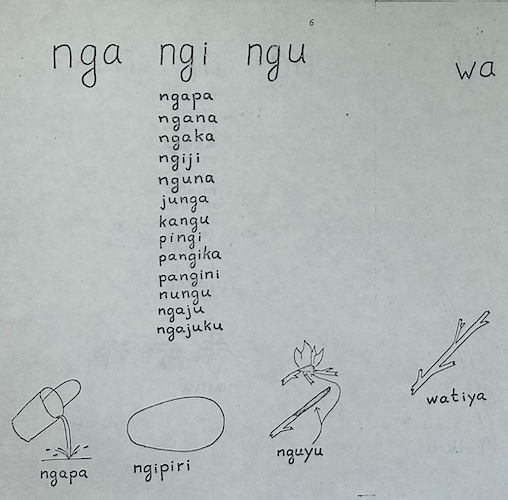 6
nga ngi ngu
wa
ngapa
ngana
ngaka
ngiji
nguna
junga
kangu
pingi
pangika
pangini
nungu
ngaju
ngajuku
ngapa
ngipiri
nguyu
watiya